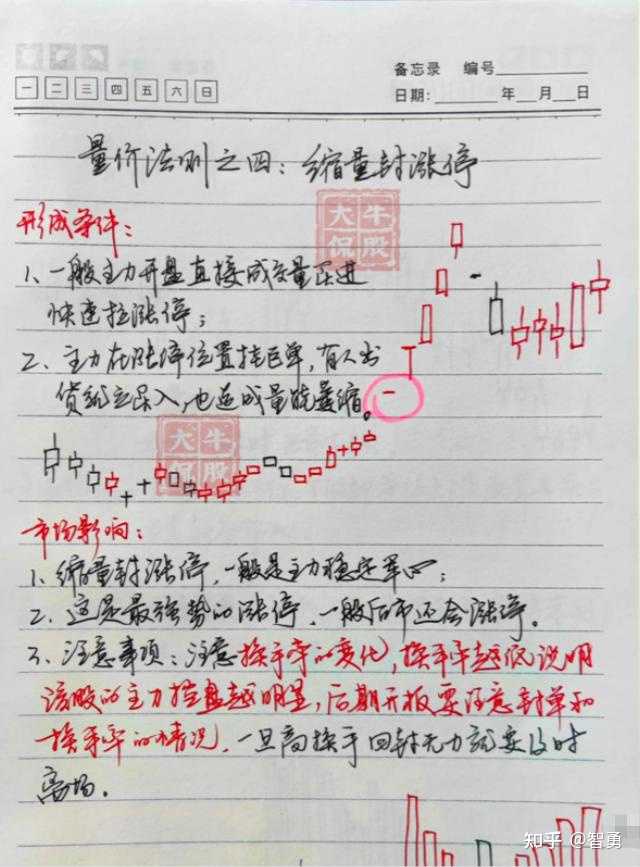 备忘录 编号
一 二 三 四 五 六 日
日期: 年 月 日
量价法则之四：缩量封涨停
大牛
保股
形成条件：
1、一般主力开盘直接成交量跃进
快速拉涨停；
2、主力在涨停位置挂巨单，有人出
货就立买入，也造成量能萎缩。
大牛
保股
市场影响：
1、缩量封涨停，一般是主力稳定军心；
2、这是最强势的涨停，一般后市还会涨停。
3、注意事项：注意换手率的变化，换手率越低说明
该股的主力控盘越明显，后期开板要注意封单和
换手率的情况，一旦高换手回封无力就要及时
离场。
知乎 @智勇